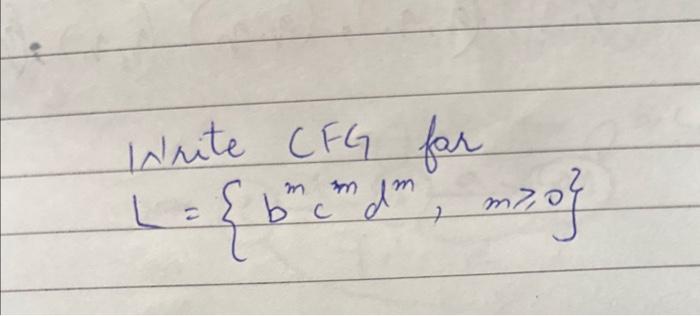 Write CFG for
L = { b^m c^m d^m, m ≥ 0 }